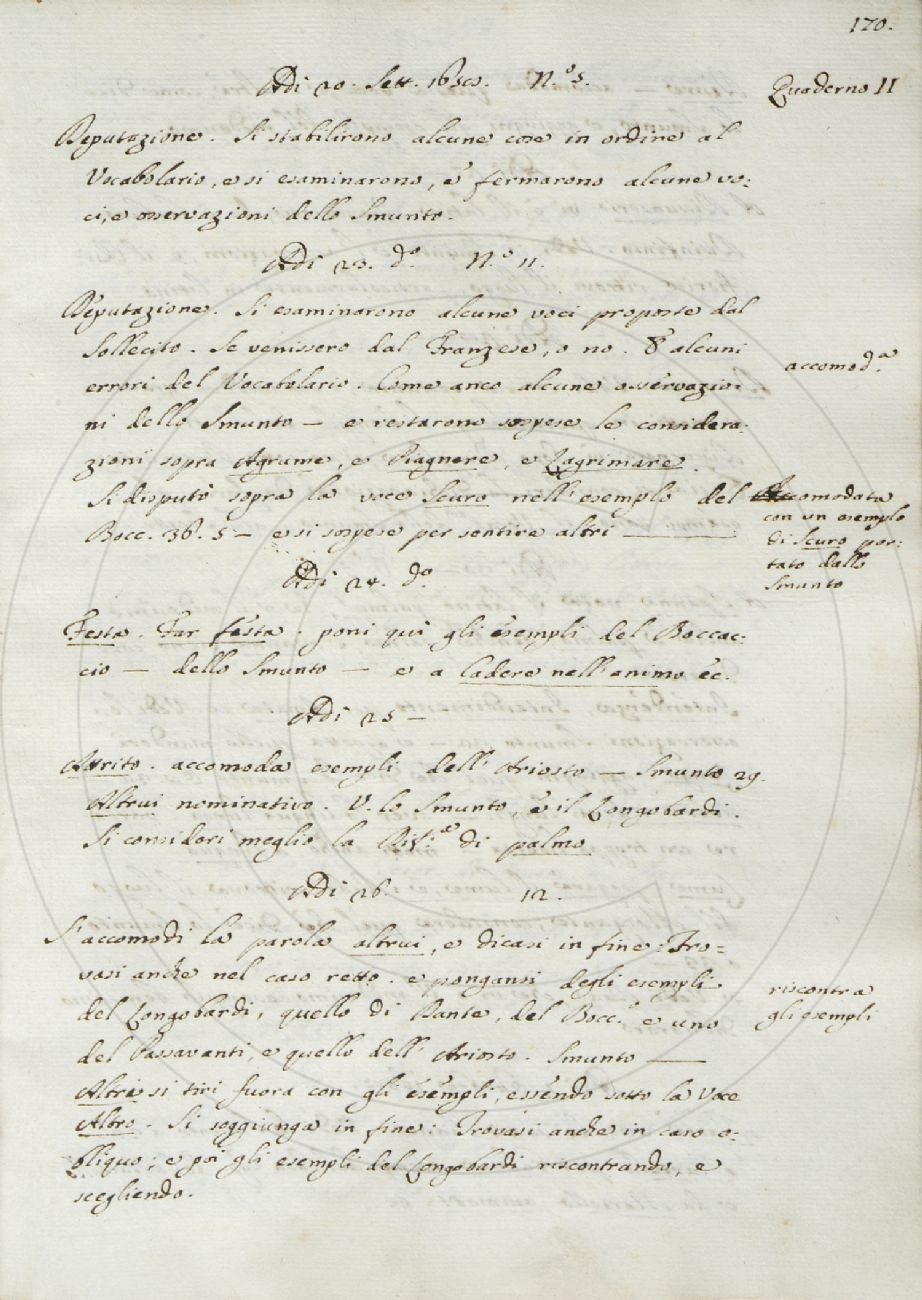 170.
Adi 20. Sett. 1650. N.º 5.
Quaderno II
Deputazione. Si stabilirono alcune cose in ordine al
Vocabolario, e si esaminarono, e fermarono alcune vo:
ci, e osservazioni dello Smunto.
Adi 23. dº. N.º 11.
Deputazione. Si esaminarono alcune voci proposte dal
Sollecito. Se venissero dal Franzese, o no. E alcuni
accomod.ª
errori del Vocabolario. Come anco alcune osservazio:
ni dello Smunto — e restarono sospese le considera:
zioni sopra Agrume, e Piagnere, e Lagrimare.
Si disputò sopra la voce Scuro nell'esemplo del
Bocc. 36. 5 — e si sospese per sentire altri —
Accomodata
con un esemplo
di Scuro por:
tato dallo
Smunto
Adi 24. dº.
Festa. Far festa. poni quì gli esempli del Boccac:
cio — dello Smunto — e a Cadere nell'animo ec.
Adi 25 —
Marito. accomoda esempli dell'Ariosto, — Smunto 29.
Altrui nominativo. V. lo Smunto, e il Longobardi.
Si consideri meglio la Dif.ne di palmo
Adi 26. 12.
S'accomodi la parola altrui, e dicasi in fine: Tro=
vasi anche nel caso retto. e pongansi degli esempli
riscontra
gli esempli
del Longobardi, quello di Dante, del Bocc.º e uno
del Passavanti, e quello dell'Ariosto. Smunto —
Altri si tiri fuora con gli esempli, essendo sotto la voce
Altro. Si soggiunga in fine: Trovasi anche in caso o:
bliquo; e poi gli esempli del Longobardi riscontrando, e
scegliendo.